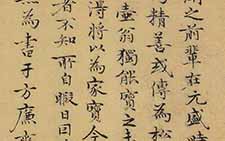 之前輩在元盛時
精善或傳為松
壺翁獨能寶之
得將以為家寶今
者不知所自暇日因
為書于方廉